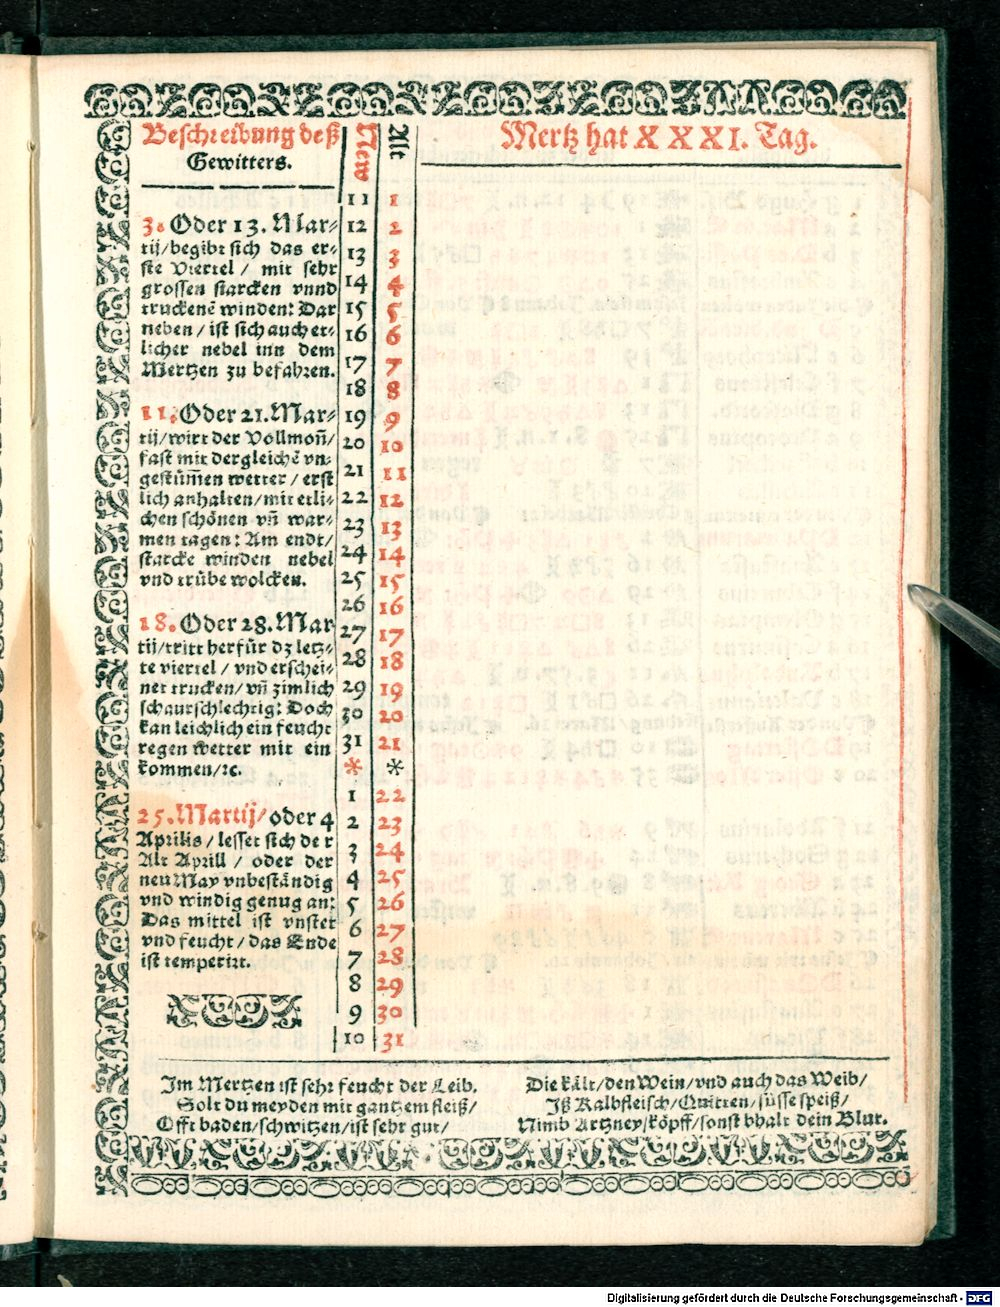 Beschreibung deß
Gewitters.
New
Alt
Mertz hat XXXI. Tag.
3. Oder 13. Mar-
tij/begibt sich das er-
ste Viertel / mit sehr
grossen starcken vnnd
truckenē winden: Dar
neben / ist sich auch er-
licher nebel inn dem
Mertzen zu befahren.
11. Oder 21. Mar-
tij/wirt der Vollmoñ/
fast mit dergleichē vn-
gestümen wetter / erst
lich anhalten/mit etli-
chen schönen vñ war-
men tagen: Am endt/
starcke winden nebel
vnd trübe wolcken.
18. Oder 28. Mar
tij/tritt herfür dz letz-
te viertel / vnd erschei-
net trucken/ vñ zimlich
schaurschlechtig: Doch
kan leichlich ein feucht
regen wetter mit ein
kommen/ꝛc.
25. Martij/ oder 4
Aprilis / lesset sich der
Alt Aprill / oder der
neu May vnbeständig
vnd windig genug an:
Das mittel ist vnstet
vnd feucht / das Ende
ist temperirt.
11 1
12 2
13 3
14 4
15 5
16 6
17 7
18 8
19 9
20 10
21 11
22 12
23 13
24 14
25 15
26 16
27 17
28 18
29 19
30 20
31 21
* *
1 22
2 23
3 24
4 25
5 26
6 27
7 28
8 29
9 30
10 31
Im Mertzen ist sehr feucht der Leib.
Solt du meyden mit gantzem fleiß/
Offt baden/schwitzen/ist sehr gut/
Die kält/den Wein/vnd auch das Weib/
Iß Kalbfleisch/Quitten/süsse speiß/
Nimb Artzney/köpff/sonst bhalt dein Blut.
Digitalisierung gefördert durch die Deutsche Forschungsgemeinschaft - DFG